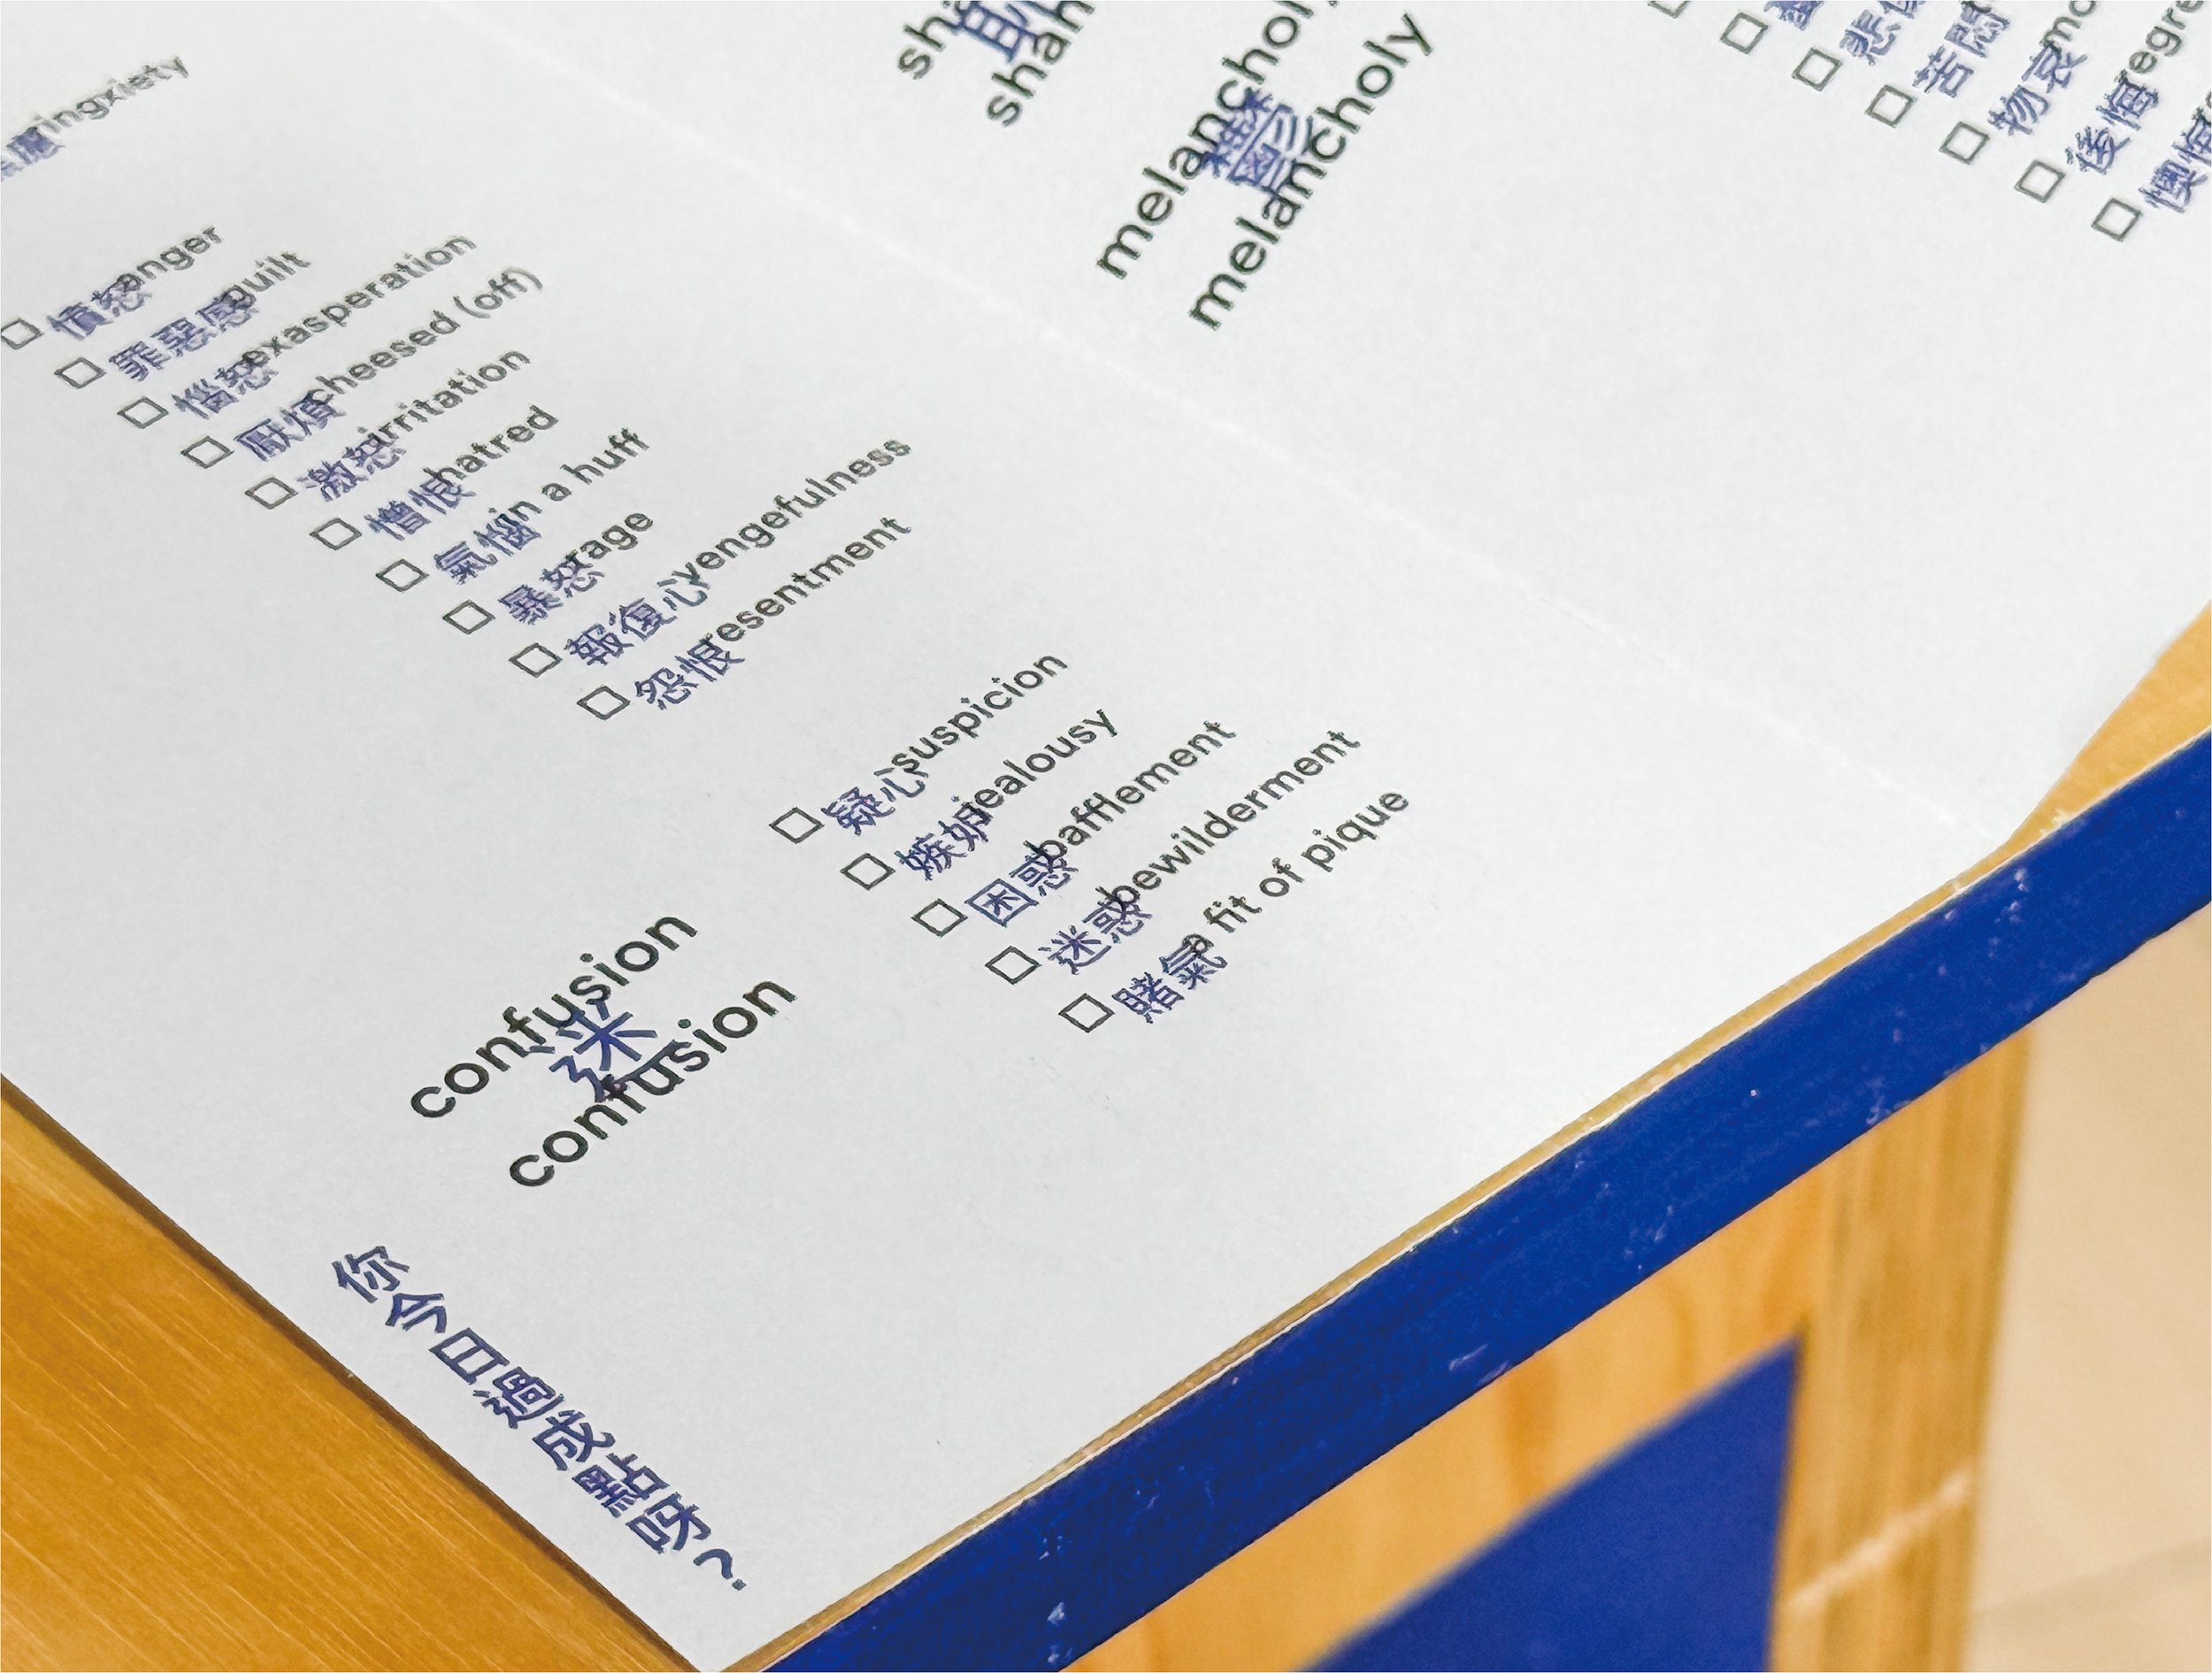 ringxiety
憤怒anger
罪惡感guilt
惱怒exasperation
厭煩cheesed (off)
激怒irritation
憎恨hatred
氣惱in a huff
暴怒rage
報復心vengefulness
怨恨resentment
疑心suspicion
嫉妒jealousy
困惑bafflement
迷惑bewilderment
賭氣a fit of pique
confusion
迷
confusion
melancholy
鬱
melancholy
苦悶
物哀
後悔
懊悔
你今日過成點呀?